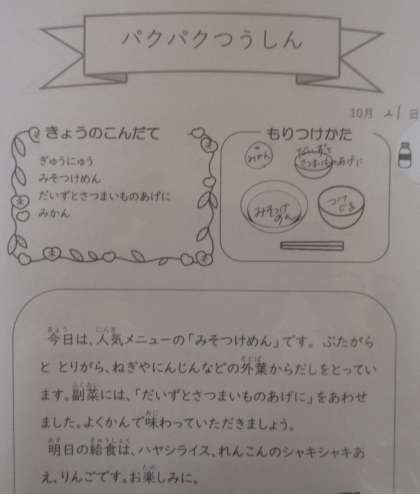 パクパクつうしん
10月 21日
きょうのこんだて
ぎゅうにゅう
みそつけめん
だいずとさつまいものあげに
みかん
もりつけかた
みかん
だいずと
さつまいものあげに
みそつけ
めん
つけ
じる
今日は、人気メニューの「みそつけめん」です。ぶたがら
と とりがら、ねぎやにんじんなどの外葉からだしをとってい
ます。副菜には、「だいずとさつまいものあげに」をあわせ
ました。よくかんで味わっていただきましょう。
明日の給食は、ハヤシライス、れんこんのシャキシャキあ
え、りんごです。お楽しみに。